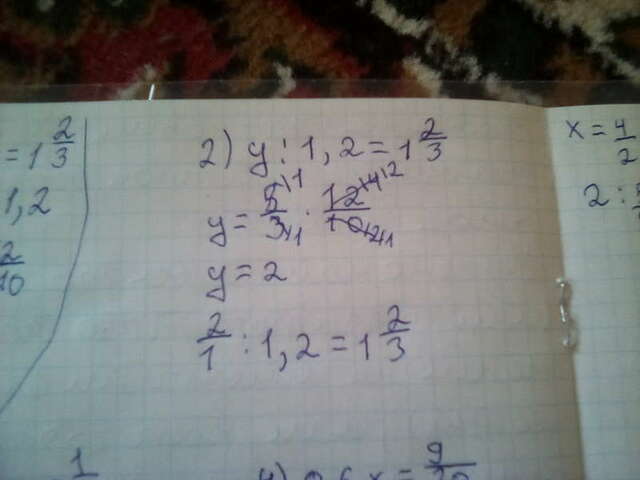 = 1 2/3
1,2
2/10
2) y : 1,2 = 1 2/3
y = 5/3 · 12/10
y = 2
2/1 : 1,2 = 1 2/3
x = 4/2
2 :
1